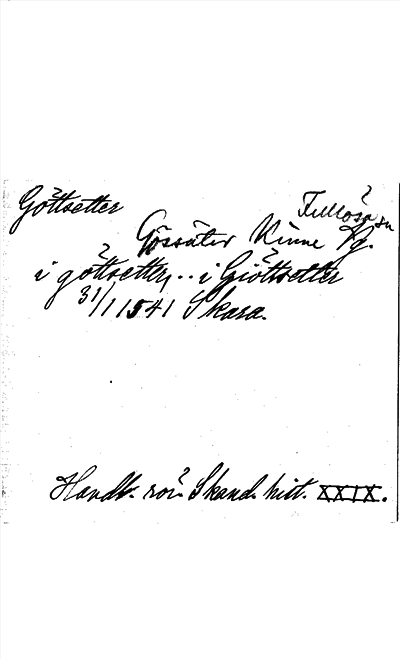 Göttsetter
Fullösa sn
Gössäter Kinne Hg.
i göttsetter, .. i Giöttsetter
31/1 1541 Skara.
Handl. rör. Skand. hist. XXIX.